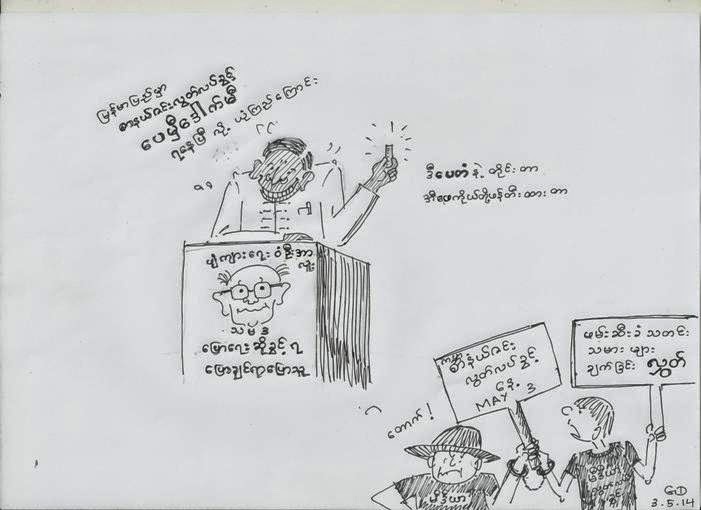 မြန်မာပြည်မှာ
စာနယ်ဇင်းလွတ်လပ်ခွင့်
ပေမှီဒေါက်မီ
ရနေပြီ လို့ ယုံကြည်ကြောင်း
ဒီပေတံ နဲ့ တိုင်းတာ
အိုးရေး ဝံဦးအာ
သမ္မတ
ပြောရေး ဆိုခွင့် ရ
ပြောချင်ရာပြောသူ
တောက်!
ကမ္ဘာ့
စာနယ်ဇင်း
လွတ်လပ်ခွင့်
နေ့
MAY 3
ဖမ်းဆီးခံ သတင်း
သမား များ
ချက်ခြင်း လွှတ်
မီဒီယာ
GD
3.5.14